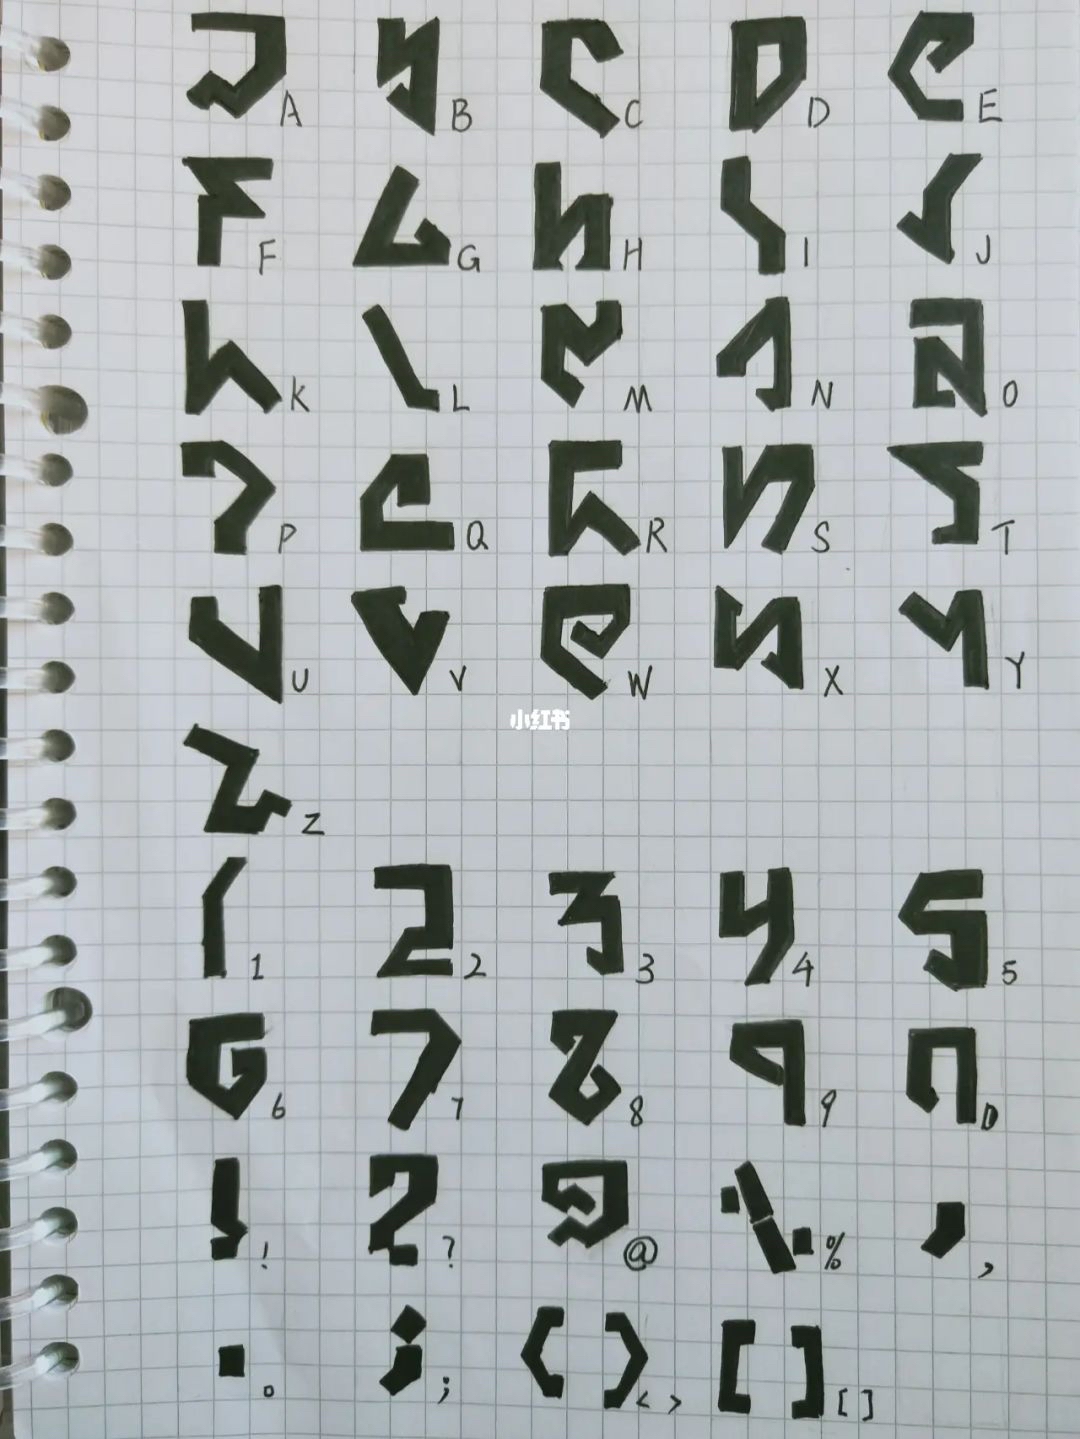 A B C D E
F G H I J
K L M N O
P Q R S T
U V W X Y
小红书
Z
1 2 3 4 5
6 7 8 9 0
! ? @ % ,
。 ; < > [ ]